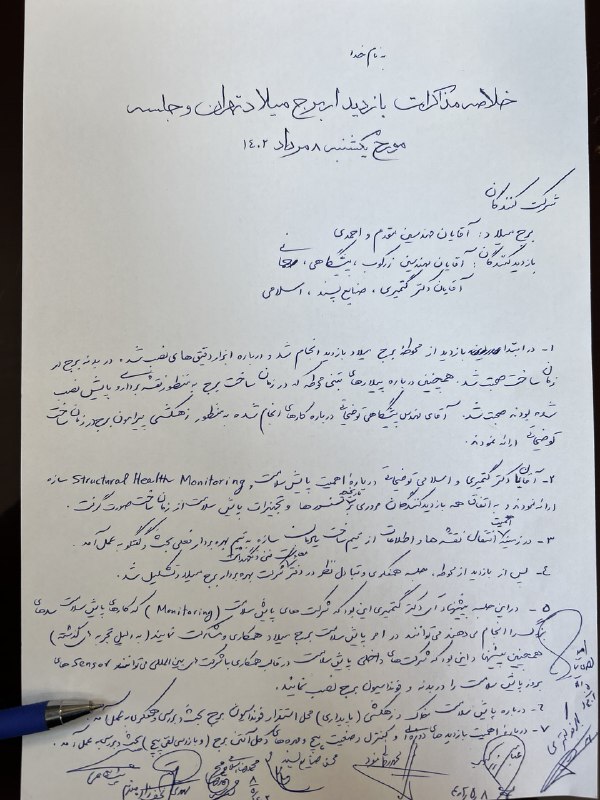 به نام خدا
خلاصه مذاکرات بازدید از برج میلاد تهران و جلسه
مورخ یکشنبه ۸ مرداد ۱٤۰۲
شرکت کنندگان
برج میلاد: آقایان مهندسین مقدم و احمدی
بازدیدکنندگان: آقایان مهندسین زرکوب، پیشگاهی،
آقایان دکتر گتمیری، صنایع پسند، اسلامی
۱- در ابتدا بازدید از محوطه برج میلاد انجام شد و درباره ابزار دقیق‌های نصب شده در بدنه برج در
زمان ساخت صحبت شد. همچنین درباره پیلارهای بتنی محوطه که در زمان ساخت برج به منظور نقشه برداری و پایش نصب
شده بودند صحبت شد. آقای مهندس پیشگاهی توضیحاتی درباره کارهای انجام شده به منظور زهکشی پیرامون برج در زمان ساخت
توضیحاتی ارائه نمودند.
۲- آقایان دکتر گتمیری و اسلامی توضیحاتی درباره اهمیت پایش سلامت Structural Health Monitoring سازه
ارائه نمودند و به اتفاق همه بازدیدکنندگان مروری بر تاریخچه سنسورها و تجهیزات پایش سلامت از زمان ساخت صورت گرفت.
۳- در زمینه اهمیت انتقال نقشه‌ها و اطلاعات از تیم ساخت یادمان سازه به تیم بهره بردار فعلی بحث و گفتگو به عمل آمد
٤- پس از بازدید از محوطه، جلسه همفکری و تبادل نظر در دفتر شرکت بهره بردار برج میلاد تشکیل شد.
۵- در این جلسه پیشنهاد آقای دکتر گتمیری این بود که شرکت های پایش سلامت (Monitoring) که کارهای پایش سلامت سدهای
بزرگ را انجام می‌دهند می‌توانند در امر پایش سلامت برج میلاد همکاری و مشارکت نمایند (به دلیل تجربه‌های گذشته)
همچنین پیشنهاد این بود که شرکت‌های داخلی پایش سلامت در قالب همکاری با شرکت‌های بین‌المللی می‌توانند Sensor های
بروز پایش سلامت را در بدنه و فونداسیون برج نصب نمایند.
۶- درباره پایش سلامت زهکشی (پایداری) محل استقرار فونداسیون برج بحث و بررسی و همفکری به عمل آمد.
۷- درباره اهمیت بازدیدهای دوره‌ای و کنترل وضعیت پیچ و مهره‌های دکل آنتن برج (و بازرسی پیچ) بحث و بررسی به عمل آمد.